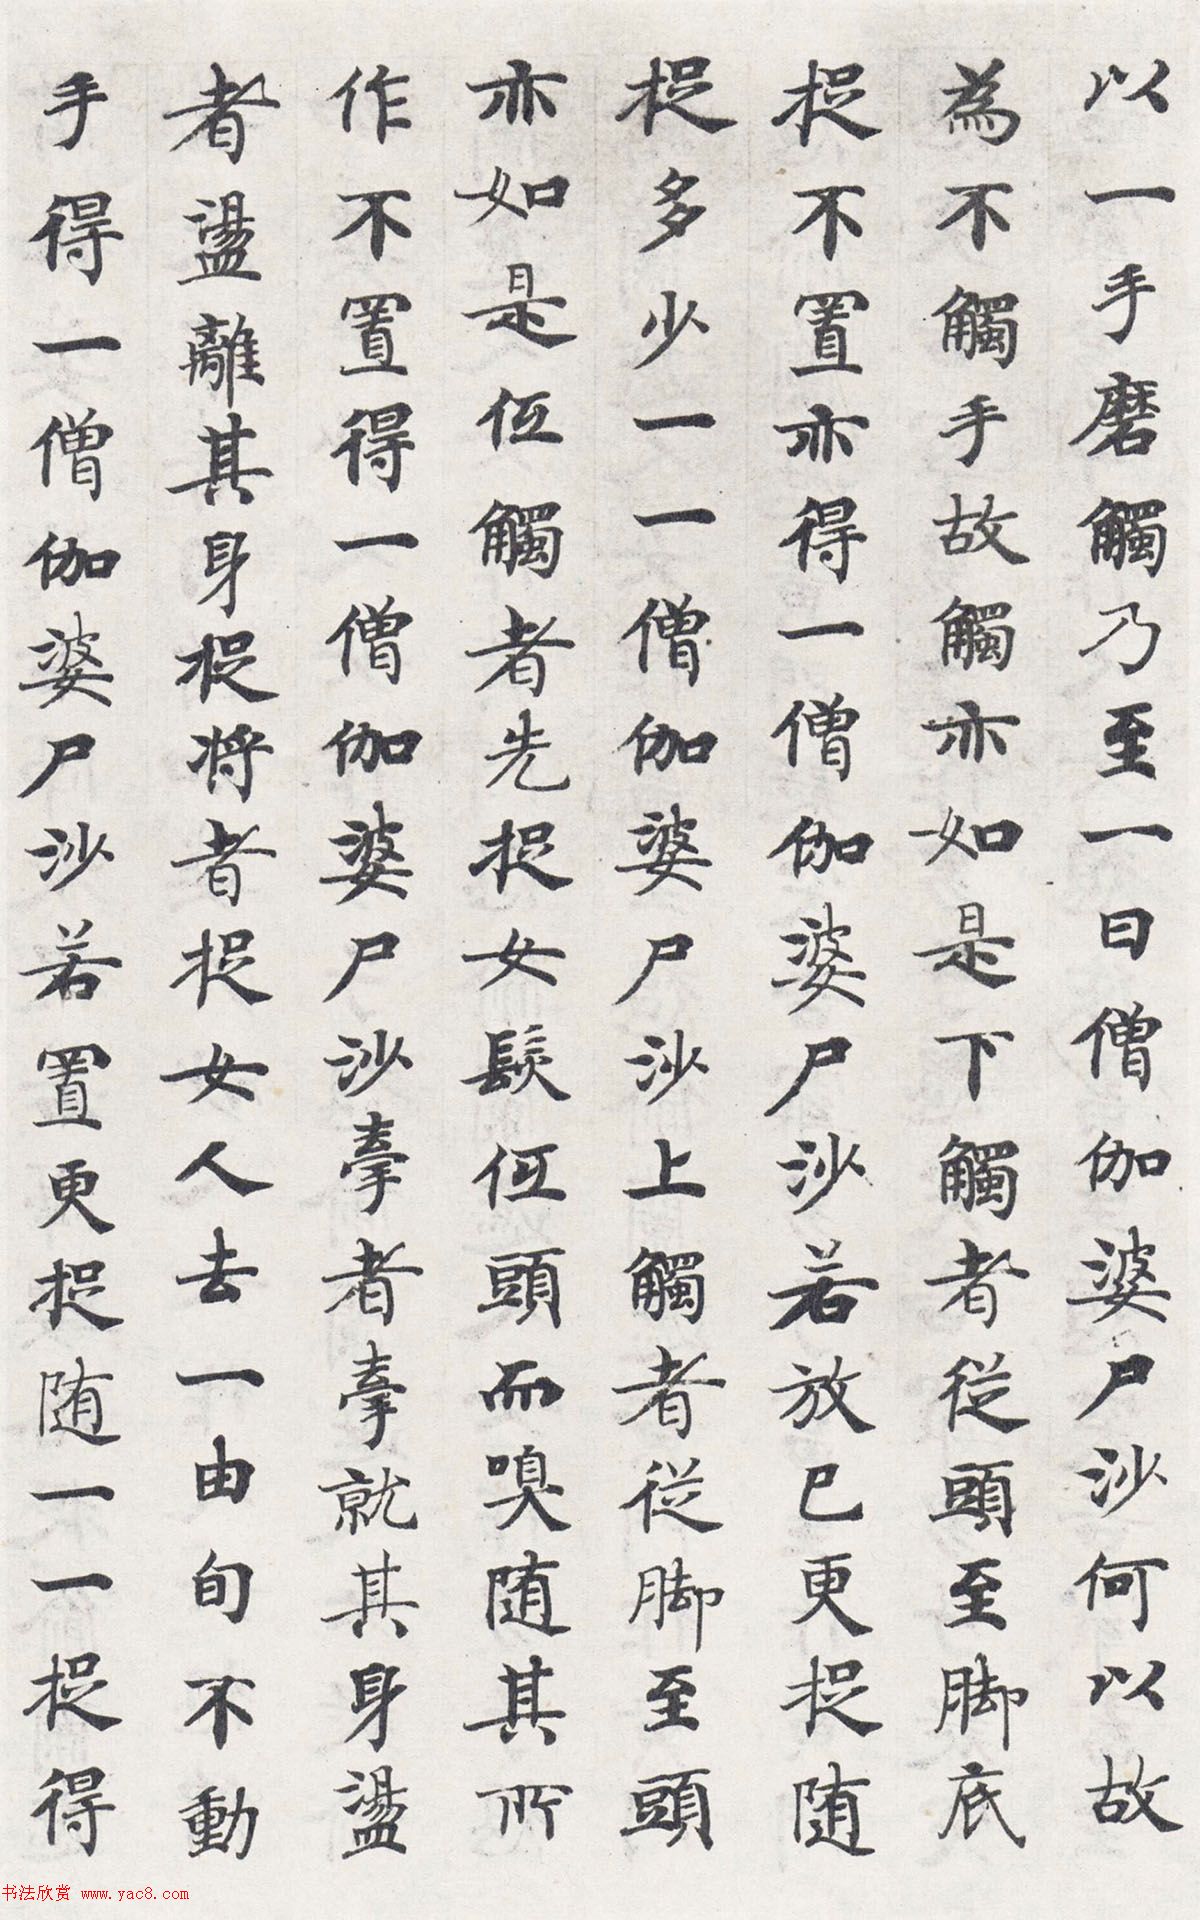 以一手磨觸乃至一日僧伽婆尸沙何以故
為不觸手故觸亦如是下觸者從頭至脚底
捉不置亦得一僧伽婆尸沙若放已更捉随
捉多少一一僧伽婆尸沙上觸者從脚至頭
亦如是伍觸者先捉女髮伍頭而嗅随其所
作不置得一僧伽婆尸沙㨷者㨷就其身盪
者盪離其身捉将者捉女人去一由旬不動
手得一僧伽婆尸沙若置更捉随一一捉得
书法欣赏 www.yac8.com